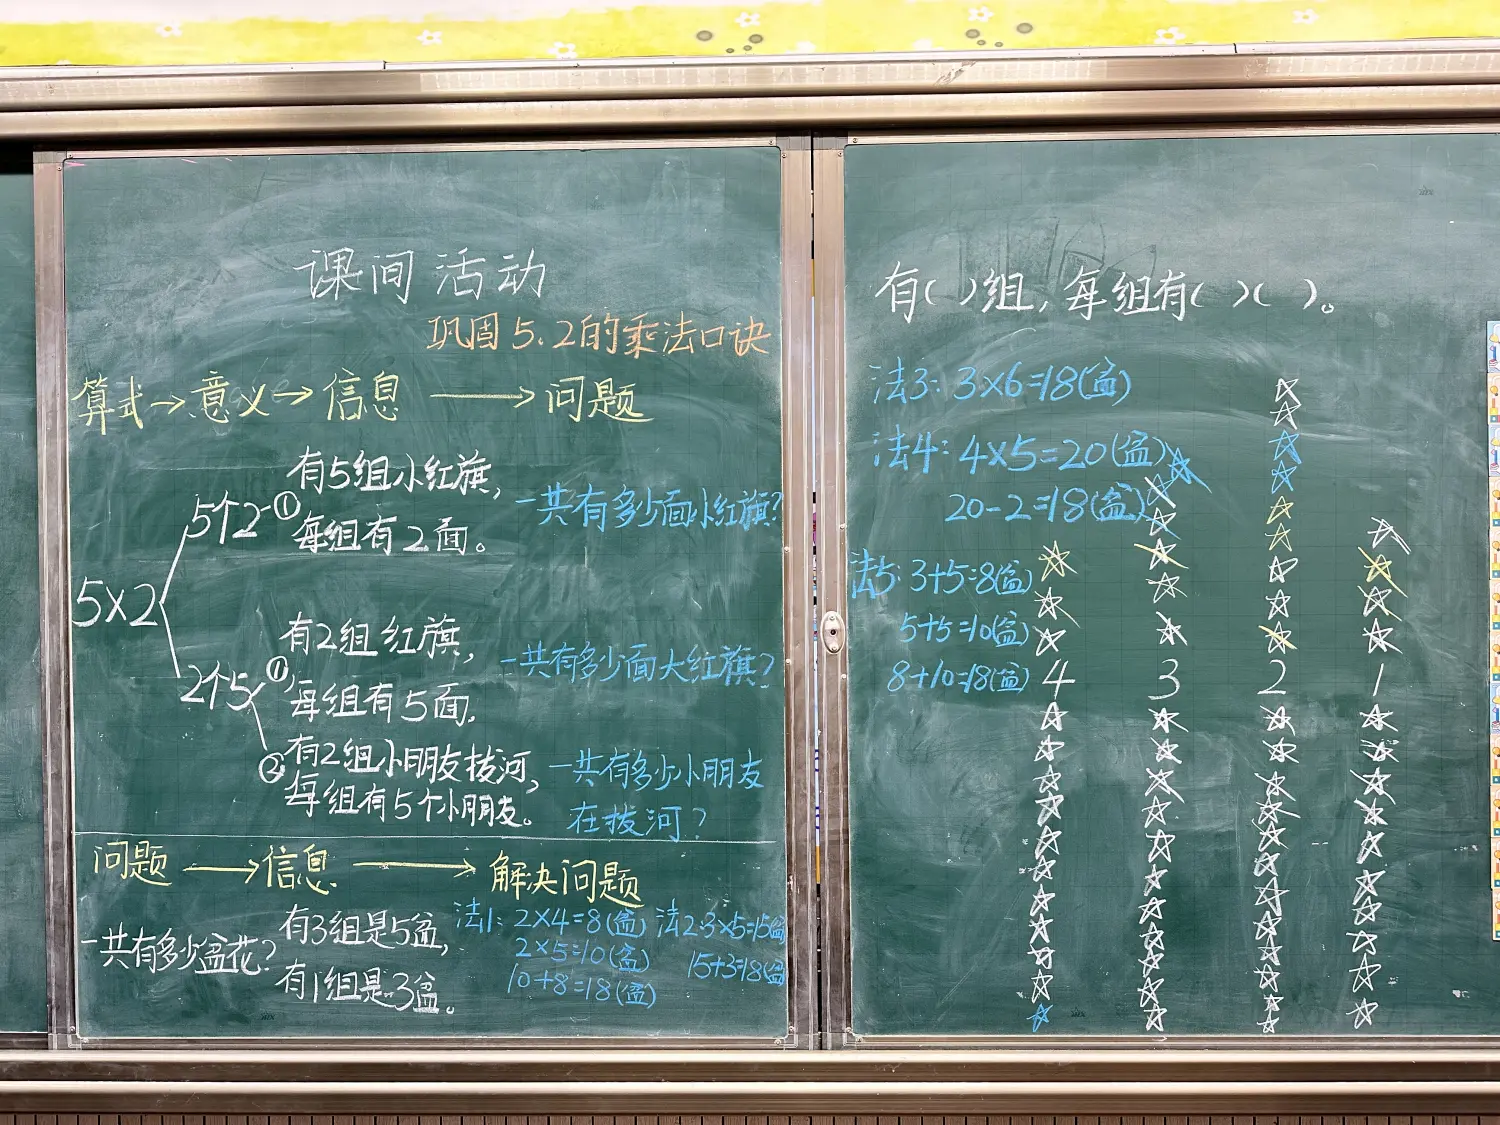 课间活动
巩固5.2的乘法口诀
算式→意义→信息→问题
5×2
5个2
①有5组小红旗，
每组有2面。
一共有多少面小红旗?
2个5
①有2组红旗，
每组有5面.
一共有多少面大红旗?
②有2组小朋友拔河，
每组有5个小朋友。
一共有多少小朋友
在拔河?
问题→信息→解决问题
一共有多少盆花?
有3组是5盆，
有1组是3盆。
法1: 2×4=8(盆)
2×5=10(盆)
10+8=18(盆)
法2:3×5=15(盆)
15+3=18(盆)
有( )组，每组有( )( )。
法3: 3×6=18(盆)
法4: 4×5=20(盆)
20-2=18(盆)
法5: 3+5=8(盆)
5+5=10(盆)
8+10=18(盆)
4 3 2 1